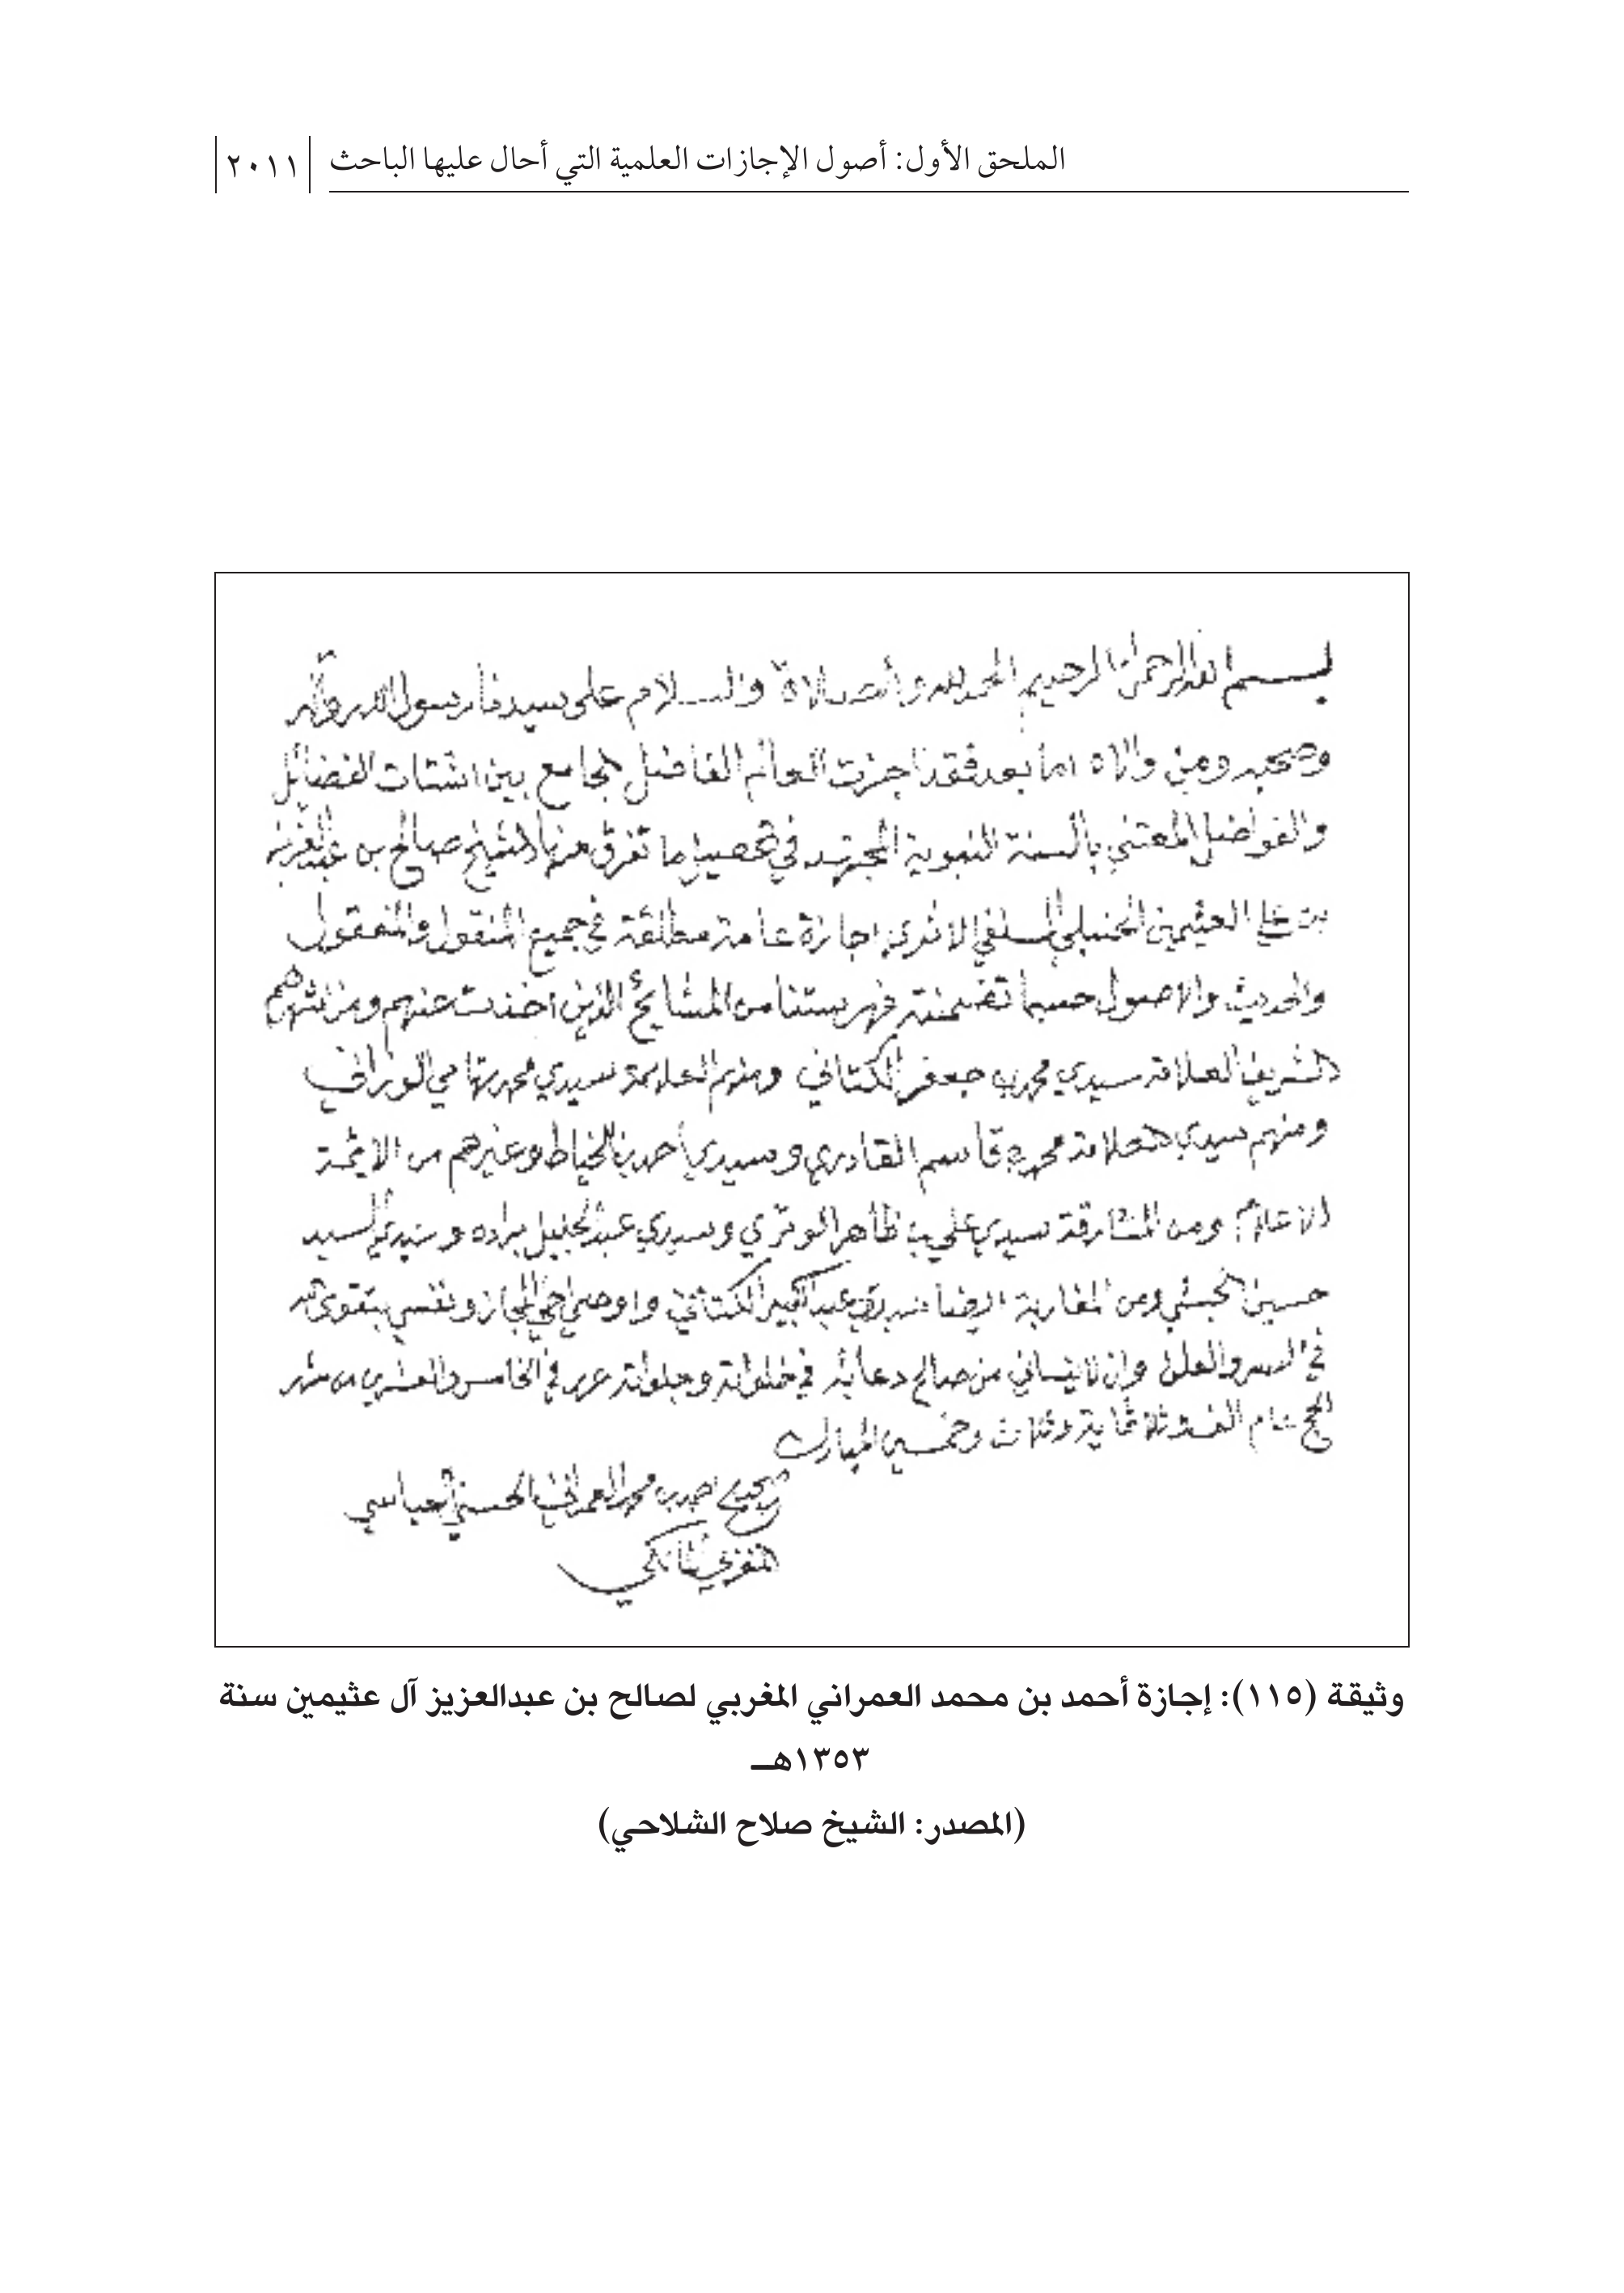 الملحق الأول: أصول الإجازات العلمية التي أحال عليها الباحث ٢٠١١
بسم الله الرحمن الرحيم الحمد لله والصلاة والسلام على سيدنا رسول الله وآله
وصحبه ومن والاه اما بعد فقد اجزت العالم الفاضل الجامع بين اشتات الفضائل
والفواضل المعتني بالسنة النبوية المجتهد في تحصيل ما تفرق منها الشيخ صالح بن عبدالعزيز
بن علي العثيمين الحنبلي السلفي الاثري اجازة عامة مطلقة في جميع المنقول والمعقول
والحديث والاصول حسبما تضمنته فهرستنا من المشايخ الذين اخذت عنهم ومن اشهرهم
الشريف العلامة سيدي محمد بن جعفر الكتاني ومنهم العلامة سيدي محمد تهامي الوزاني
ومنهم سيدي العلامة محمد بن قاسم القادري وسيدي أحمد بن الخياط وغيرهم من الائمة
الاعلام ومن المشارقة سيدي علي بن ظاهر الوتري وسيدي عبد الجليل براده وسيدي السيد
حسين الحبشي ومن المغاربة ايضا سيدي عبد الكبير الكتاني واوصي اخي المجاز ونفسي بتقوى الله
في السر والعلن وان لا ينساني من صالح دعائه في خلواته وجلواته حرر في الخامس والعشرين من شهر
الحج عام الف وثلاثماية وثلاث وخمسين المبارك
احمد بن محمد العمراني الحسني العباسي
المغربي المالكي
وثيقة (١١٥): إجازة أحمد بن محمد العمراني المغربي لصالح بن عبدالعزيز آل عثيمين سنة
١٣٥٣هـ
(المصدر: الشيخ صلاح الشلاحي)